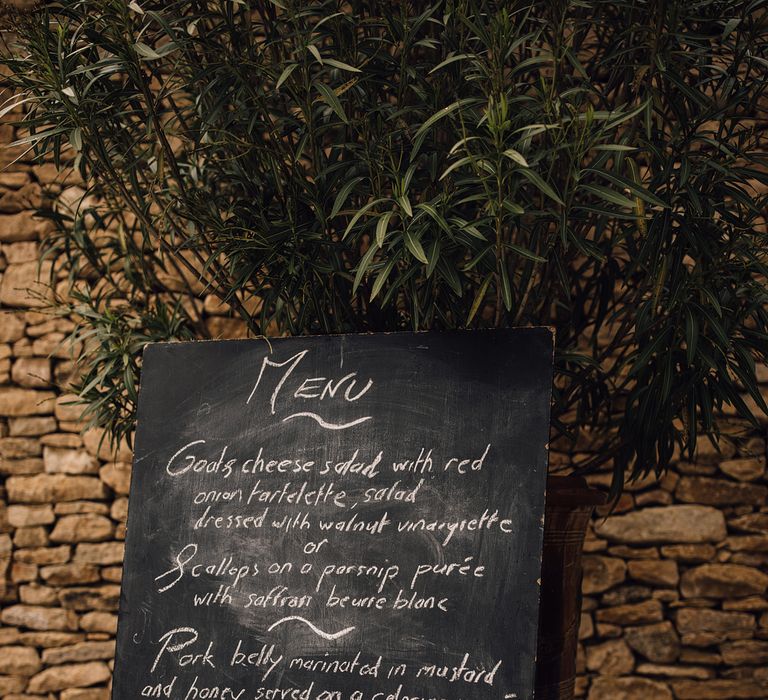 MENU
Goats cheese salad with red
onion tartelette, salad
dressed with walnut vinaigrette
or
Scallops on a parsnip purée
with saffron beurre blanc
Pork belly marinated in mustard
and honey served on a